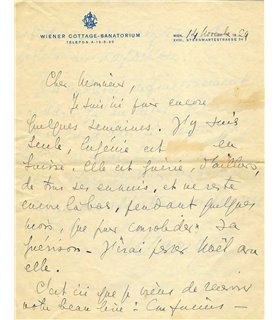 WIENER COTTAGE-SANATORIUM
TELEFON A-15-5-20
WIEN, 14 Novembre 1929
XVIII., STERNWARTESTRASSE 74
Cher Monsieur,
Je suis ici pour encore
quelques semaines. J'y suis
seule, Eugénie est en
Suisse. Elle est guérie, d'ailleurs,
de tous ses ennuis, et ne reste
encore là-bas, pendant quelques
mois, que pour consolider sa
guérison. J'irai passer Noël avec
elle.
C'est ici que je viens de recevoir
votre beau livre : Confucius –